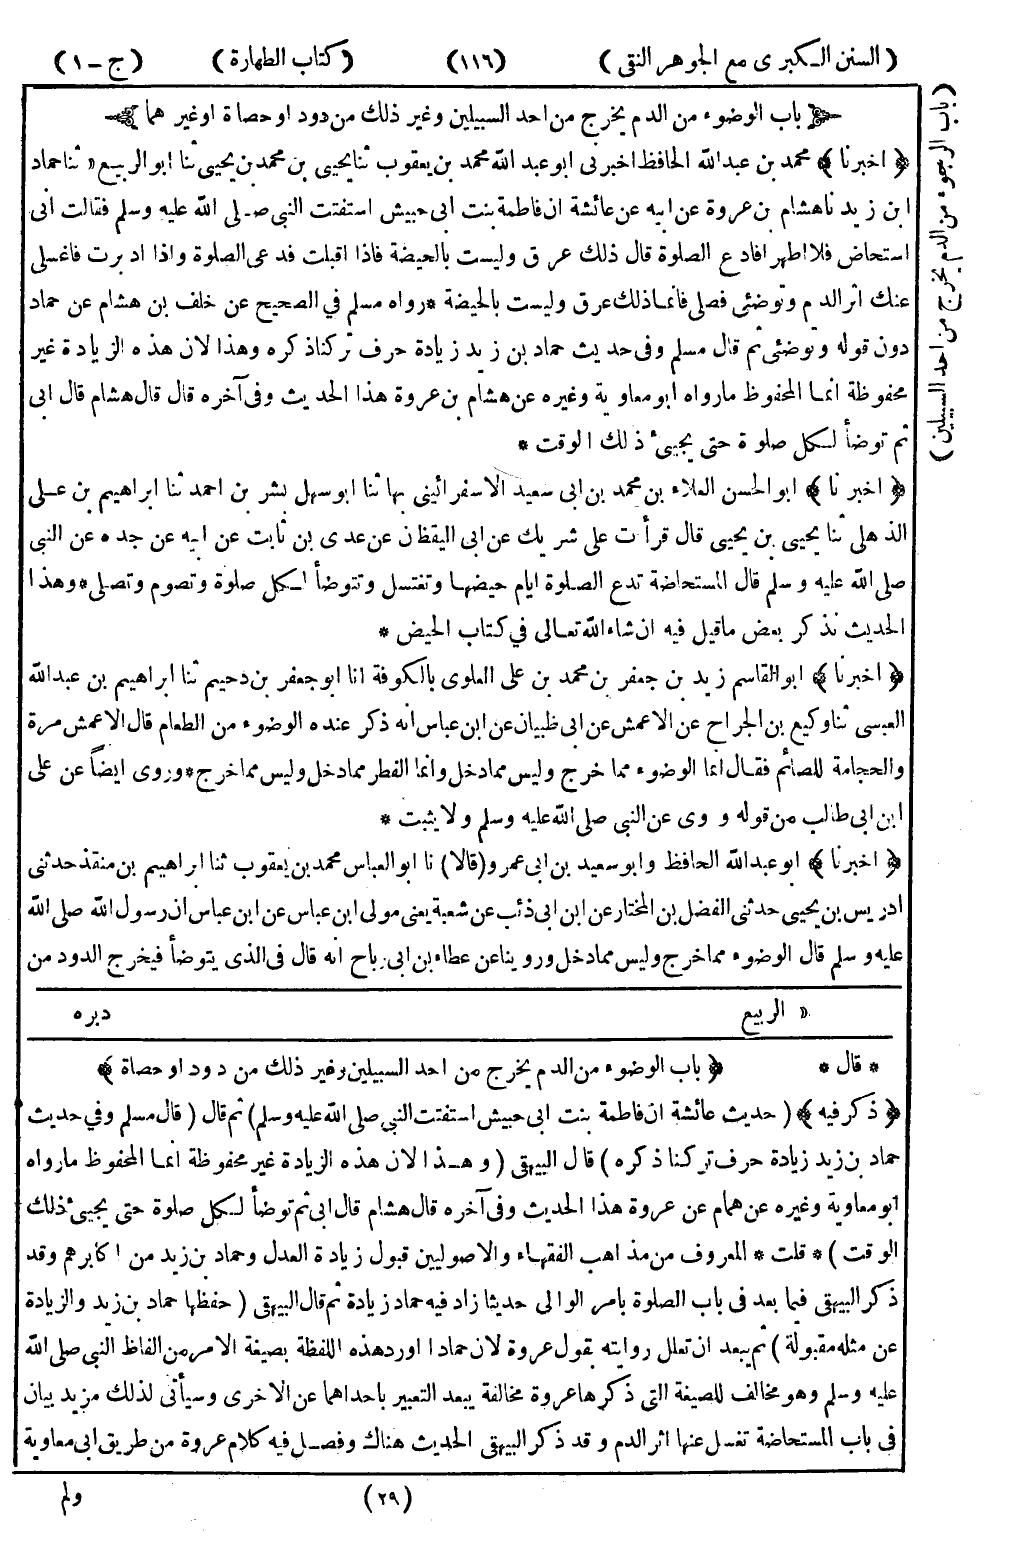 ( السنن الـكبرى مع الجوهر النقى ) (١١٦) ( كتاب الطهارة ) ( ج – ١ )
باب الوضوء من الدم يخرج من احد السبيلين وغير ذلك من دود او حصاة اوغير هما
﴿ اخبرنا ﴾ محمد بن عبدالله الحافظ اخبرنى ابو عبد الله محمد بن يعقوب ثنا يحيى بن محمد بن يحيى ثنا ابو الربيع « ثنا حماد
ابن زيد ناهشام بن عروة عن ابيه عن عائشة ان فاطمة بنت ابى حبيش استفتت النبى صلى الله عليه وسلم فقالت أنى
استحاض فلا اطهر افادع الصلوة قال ذلك عرق وليست بالحيضة فاذا اقبلت فدعى الصلوة واذا ادبرت فاغسلى
عنك اثر الدم وتوضئى فصلى فانما ذلك عرق وليست بالحيضة * رواه مسلم في الصحيح عن خلف بن هشام عن حماد
دون قوله وتوضئى ثم قال مسلم وفى حديث حماد بن زيد زيادة حرف تركنا ذكره وهذا لان هذه الزيادة غير
محفوظة انما المحفوظ مارواه ابومعاوية وغيره عن هشام بن عروة هذا الحديث وفى آخره قال قال هشام قال ابى
ثم توضأ لـكل صلوة حتى يجيئ ذلك الوقت *
﴿ اخبرنا ﴾ ابو الحسن العلاء بن محمد بن ابى سعيد الاسفرائينى بها ثنا ابو سهل بشر بن احمد ثنا ابراهيم بن عـلى
الذهلى ثنا يحيى بن يحيى قال قرأت على شريك عن ابى اليقظان عن عدى بن ثابت عن ابيه عن جده عن النبى
صلى الله عليه وسلم قال المستحاضة تدع الصلوة ايام حيضها وتغتسل وتتوضأ لـكل صلوة وتصوم وتصلى * وهذا
الحديث نذكر بعض ماقيل فيه ان شاء الله تعالى في كتاب الحيض *
﴿ اخبرنا ﴾ ابو القاسم زيد بن جعفر بن محمد بن على العلوى بالكوفة انا ابو جعفر بن دحيم ثنا ابراهيم بن عبدالله
العبسى ثنا وكيع بن الجراح عن الاعمش عن ابى ظبيان عن ابن عباس انه ذكر عنده الوضوء من الطعام قال الاعمش مرة
والحجامة للصائم فقال انما الوضوء مما خرج وليس مما دخل وانما الفطر مما دخل وليس مما خرج * وروى ايضاً عن على
ابن ابى طالب من قوله و وى عن النبى صلى الله عليه وسلم ولا يثبت *
﴿ اخبرنا ﴾ ابو عبدالله الحافظ وابو سعيد بن ابى عمرو (قالا) نا ابو العباس محمد بن يعقوب ثنا ابراهيم بن منقذ حدثنى
ادريس بن يحيى حدثنى الفضل بن المختار عن ابن ابى ذئب عن شعبة يعنى مولى ابن عباس عن ابن عباس ان رسول الله صلى الله
عليه وسلم قال الوضوء مما خرج وليس مما دخل وروينا عن عطاء بن ابى رباح انه قال فى الذى يتوضأ فيخرج الدود من
« الربيع دبره
* قال * ﴿ باب الوضوء من الدم يخرج من احد السبيلين وغير ذلك من دود او حصاة ﴾
﴿ ذكر فيه ﴾ ( حديث عائشة ان فاطمة بنت ابى حبيش استفتت النبى صلى الله عليه وسلم) ثم قال ( قال مسلم وفي حديث
حماد بن زيد زيادة حرف تركنا ذكره ) قال البيهقى ( وهـذا لان هذه الزيادة غير محفوظة انما المحفوظ مارواه
ابو معاوية وغيره عن همام عن عروة هذا الحديث وفى آخره قال هشام قال ابى ثم توضأ لـكل صلوة حتى يجيئ ذلك
الوقت ) * قلت * المعروف من مذاهب الفقهاء والاصوليين قبول زيادة العدل وحماد بن زيد من اكابرهم وقد
ذكر البيهقى فيما بعد فى باب الصلوة بامر الوالى حديثا زاد فيه حماد زيادة ثم قال البيهقى ( حفظها حماد بن زيد والزيادة
عن مثله مقبولة ) ثم يبعد ان تعلل روايته بقول عروة لان حمادا اورد هذه اللفظة بصيغة الامر من الفاظ النبى صلى الله
عليه وسلم وهو مخالف للصيغة التى ذكرها عروة مخالفة يبعد التعبير باحداهما عن الاخرى وسيأتى لذلك مزيد بيان
فى باب المستحاضة تغسل عنها اثر الدم وقد ذكر البيهقى الحديث هناك وفصـل فيه كلام عروة من طريق ابى معاوية
(٢٩) ولم
( باب الوضوء من الدم يخرج من احد السبيلين )